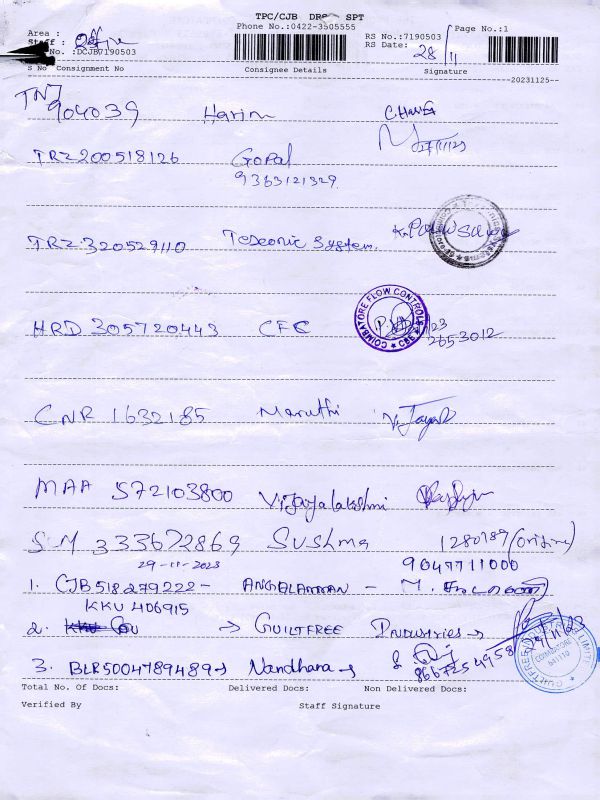 TPC/CJB DRS SPT
Phone No.:0422-3505555
Area :
Staff : Office
No. :DCJB7190503
RS No.:7190503
RS Date: 28/11
Page No.:1
S No Consignment No Consignee Details Signature
--20231125--
TNJ
904039 Harini
27/11/23
TRZ 200518126 Gopal
9363121329
TRZ 320529110 Tedeonic System.
HRD 305720443 CFC
COIMBATORE FLOW CONTROLS
CBE
2653012
CNR 1632185 Maruthi V. Jaya
MAA 572103800 Vijayalakshmi
SM 333672869 Sushma 1280789 (origine)
29-11-2023 9047711000
1. CJB518279222 - ANGALAMMAN - M.
KKU 406915
2. → GUILTFREE Industries →
3. BLR5004789489 → Nandhana → 8667254958
COIMBATORE
641110
Total No. Of Docs: Delivered Docs: Non Delivered Docs:
Verified By Staff Signature